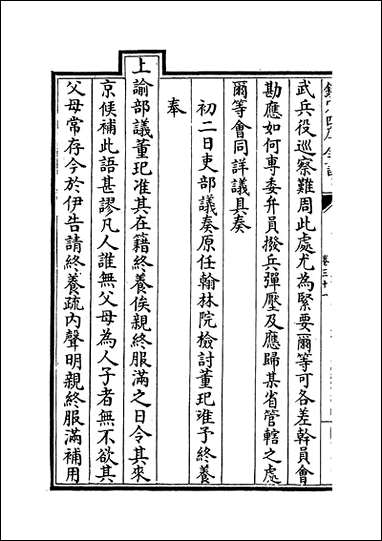 欽定四庫全書
卷三十一
武兵役巡察難周此處尤為緊要爾等可各差幹員會
勘應如何專委弁員撥兵彈壓及應歸某省管轄之處
爾等會同詳議具奏
初二日吏部議奏原任翰林院檢討董玘准予終養
奉
上諭部議董玘准其在籍終養俟親終服滿之日令其來
京候補此語甚謬凡人誰無父母為人子者無不欲其
父母常存今於伊告請終養疏內聲明親終服滿補用